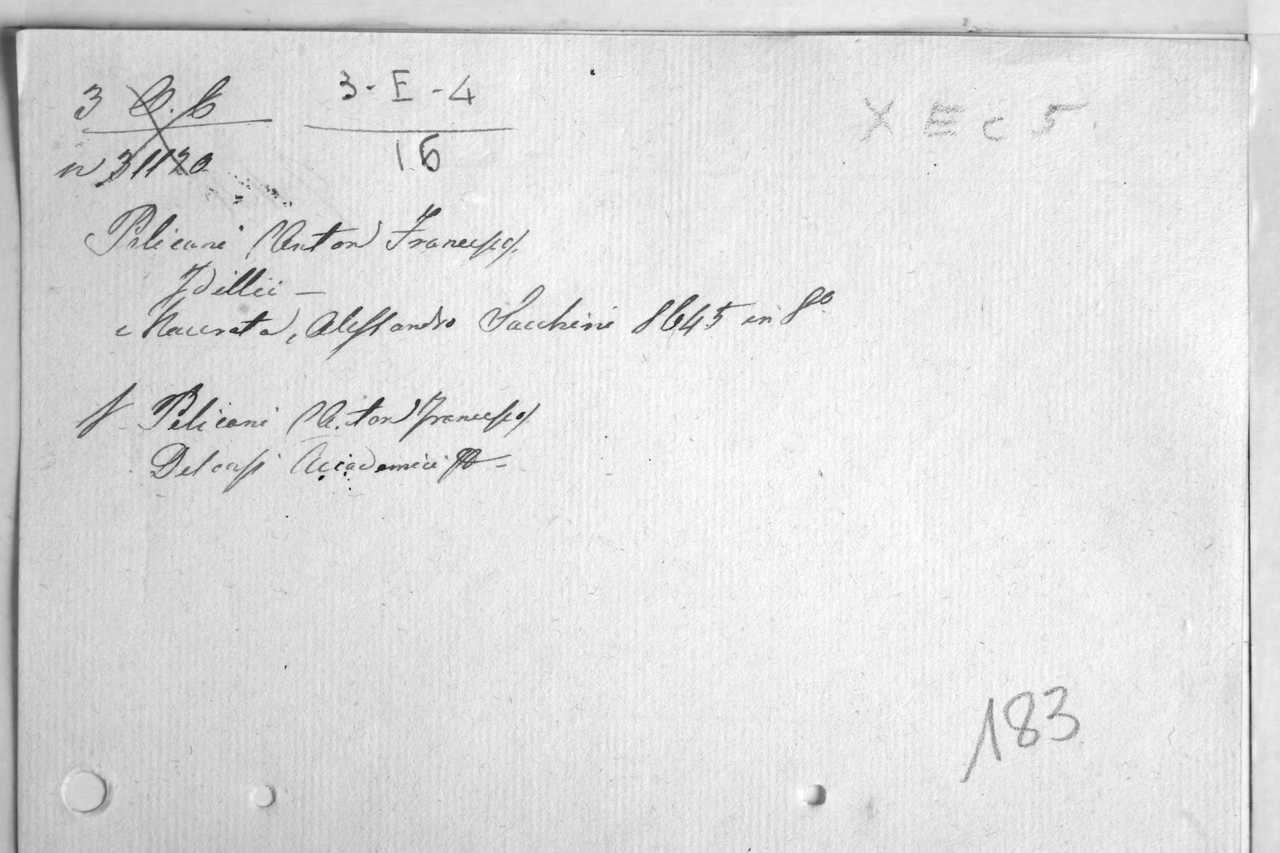 3 B.b
n 31120
3-E-4
16
X E c 5.
Pelicani (Anton) Francesco).
Idillii —
Macerata, Alessandro Sacchini 1645 in 8º
Pelicani (Anton) Francesco)
Del corpi Accademici —
183